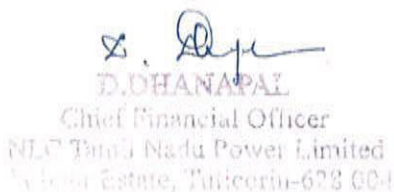 D.DHANAPAL
Chief Financial Officer
NLC Tamil Nadu Power Limited
Estate, Tuticorin-628 004